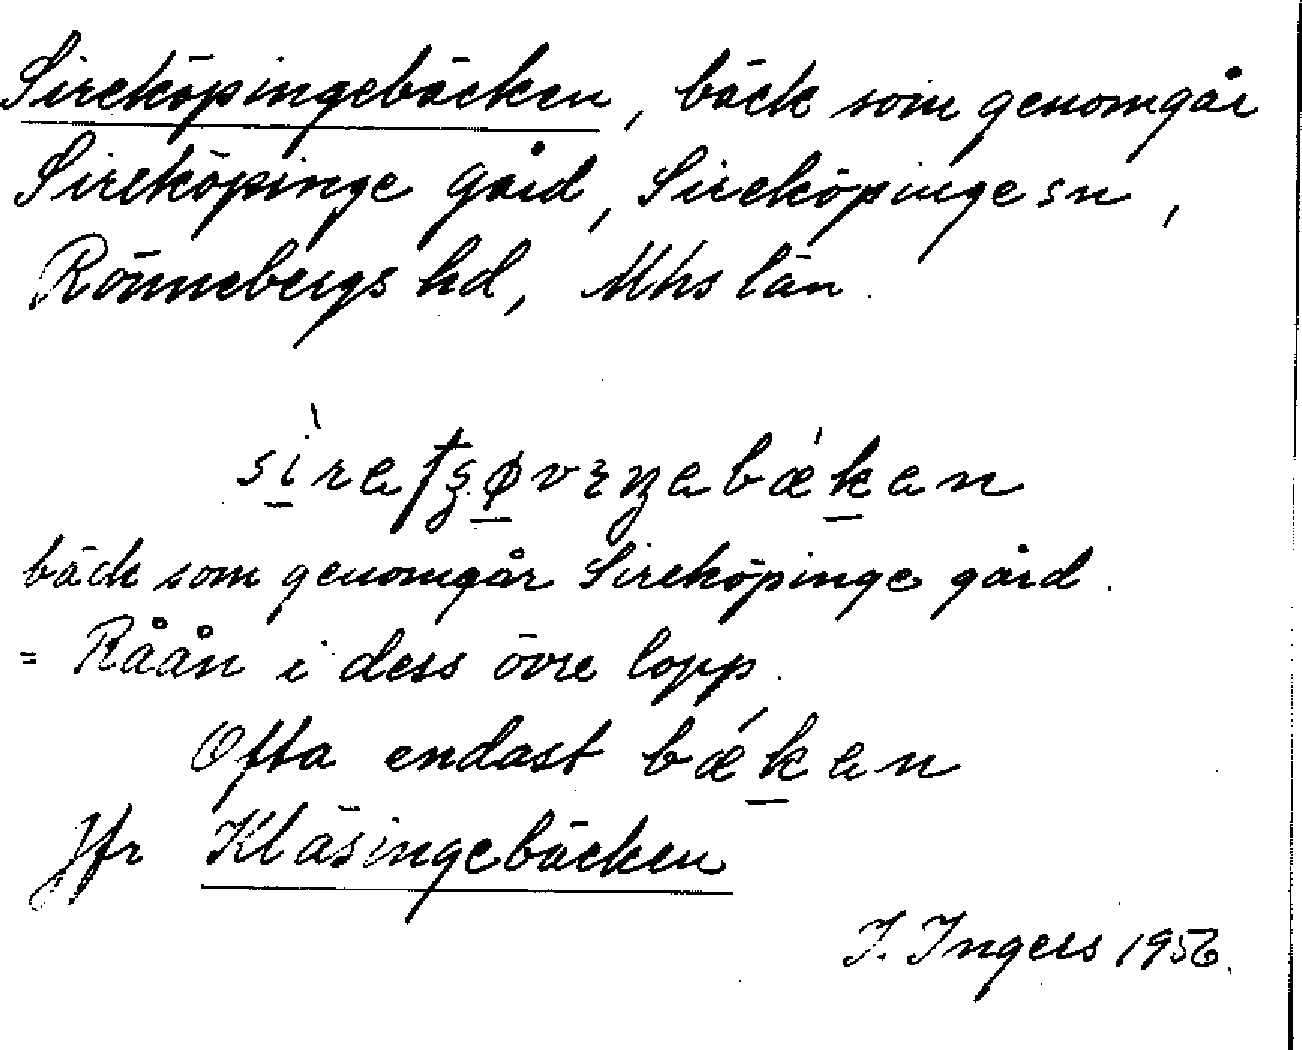 Sireköpingebäcken, bäck som genomgår
Sireköpinge gård, Sireköpinge sn,
Rönnebergs hd, Mhs län.
bäck som genomgår Sireköpinge gård.
= Råån i dess övre lopp.
Ofta endast bǽken
Jfr Kläsingebäcken
I. Ingers 1956.